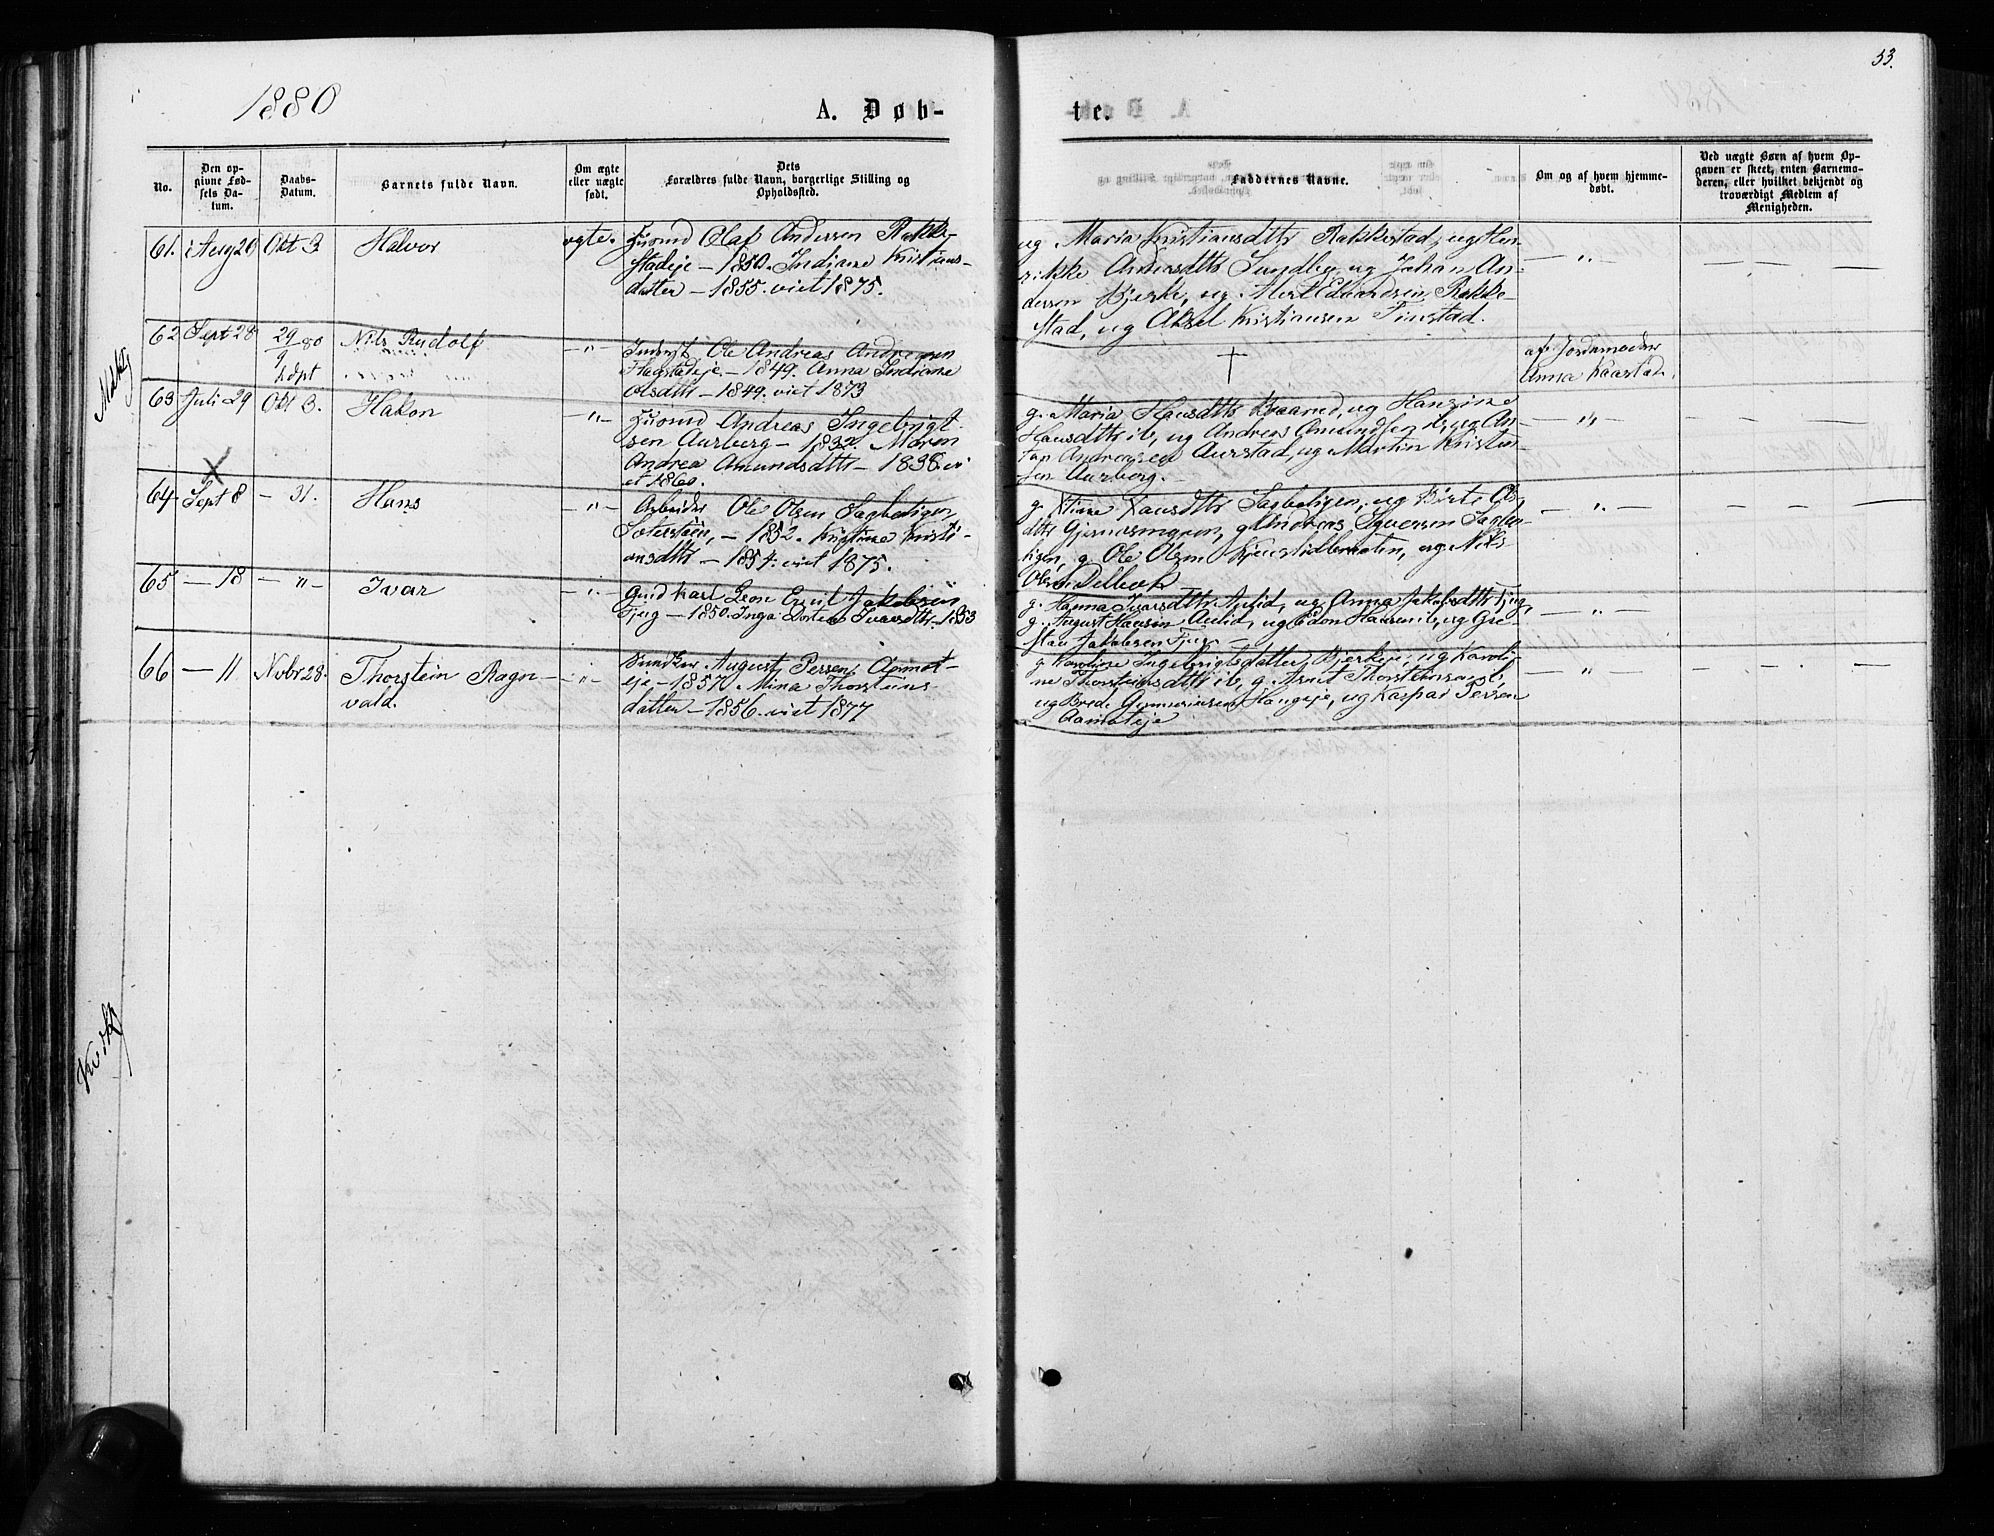 53.
1880
A. Døb-
te.
No.
Den op-
givne Fød-
sels Da-
tum.
Daabs-
Datum.
Barnets fulde Navn.
Om ægte
eller uægte
født.
Dets
Forældres fulde Navn, borgerlige Stilling og
Opholdssted.
Faddernes Navne.
Om og af hvem hjemme-
døbt.
Ved uægte Børn af hvem Op-
gaven er skeet, enten Barnemo-
deren, eller hvilket bekjendt og
troværdigt Medlem af
Menigheden.
61. Aug 20 Okt 3 Halvor ægte.
Olaf Andersen Rakke-
stadeje – 1850. Indiane Kristians-
datter – 1855. viet 1875.
og Maria Kristiansdtr Rakkestad, og Hen-
rikke Andersdtr Sundby, og Johan An-
dersen Bjerke, og Edvardsen Rakke-
stad, og Aksel Kristiansen Finstad.
— " —
62 Sept 28 29/9 80 hdpt Nils Rudolf — " —
Inderst Ole Andreas Andersen
Flagstadeje. – 1849. Anna Indiane
Olsdtr – 1849. viet 1873
†
af Jordemoder
Anna Kaarstad.
63 Juli 29 Okt 3. Hakon "
Andreas Ingebrigt-
sen Aurberg – 1832. Maren
Andrea Amundsdtr – 1838. vi
et 1860.
g. Maria Hansdtr Braarud, og Hansine
Hansdtr ib, og Andreas Amundsen ib, og An-
ton Andreasen Aurstad, og Martin Kristian-
sen Aurberg.
"
64 Sept 8 – 31. Hans — " —
Arbeider Ole Olsen Sagboligen
– 1852. Kristine Kristi-
ansdtr – 1854. viet 1875.
g. Stine Hansdtr Sagboligen, og Birte Ols-
dtr g Andreas Syversen Sagbo-
ligen, g. Ole Olsen og Nils
Olsen Delbæk
— " —
65 — 18 — " — Ivar — " —
Gmd Karl Leon Emil Jakobsen
Fjug – 1850. Inga Dortea Ivarsdtr. 1853
g. Hanna Ivarsdtr Aulid, og Anna Jakobsdtr Fjug,
g. August Hansen Aulid, og Edon Hansen ib, og Gu-
stav Jakobsen Fjug —
— " —
66 — 11 Novbr 28. Thorstein Ragn-
vald. "
Bundtker August Persen Aamot-
eje – 1857. Mina Thorsteins
datter – 1856. viet 1877
g. Karoline Ingebrigtsdatter Bjerkeje, og Karoli-
ne Thorsteinsdtr ib, g. Arnt Thorstensen ib
og Brede Gunnerius Haugeje, og Kaspar Persen
Aamoteje
— " —